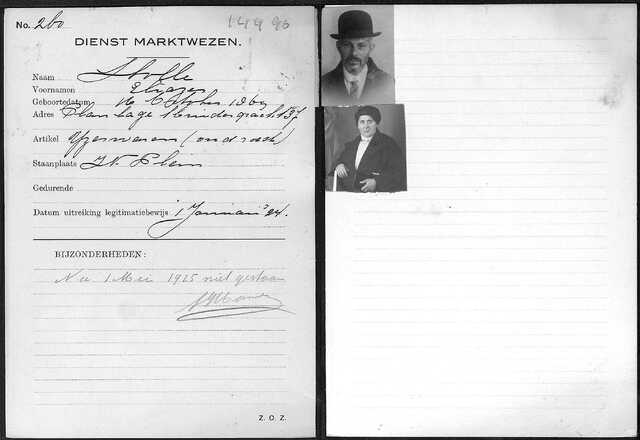 No. 260
144 96
DIENST MARKTWEZEN.
Naam Stolle
Voornamen Eleazer
Geboortedatum 16 October 186
Adres Plantage Muidergracht 37
Artikel Yzerwaren (oud roest)
Staanplaats W. Plein
Gedurende
Datum uitreiking legitimatiebewijs 1 Januari '24.
BIJZONDERHEDEN:
Na 1 Mei 1925 niet gestaan
Z. O. Z.